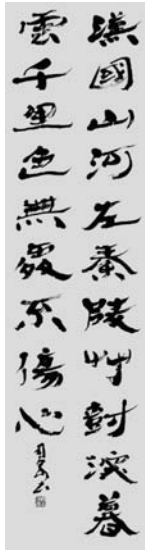 漢國山河在秦陵艸樹深暮
雲千里色無處不傷心